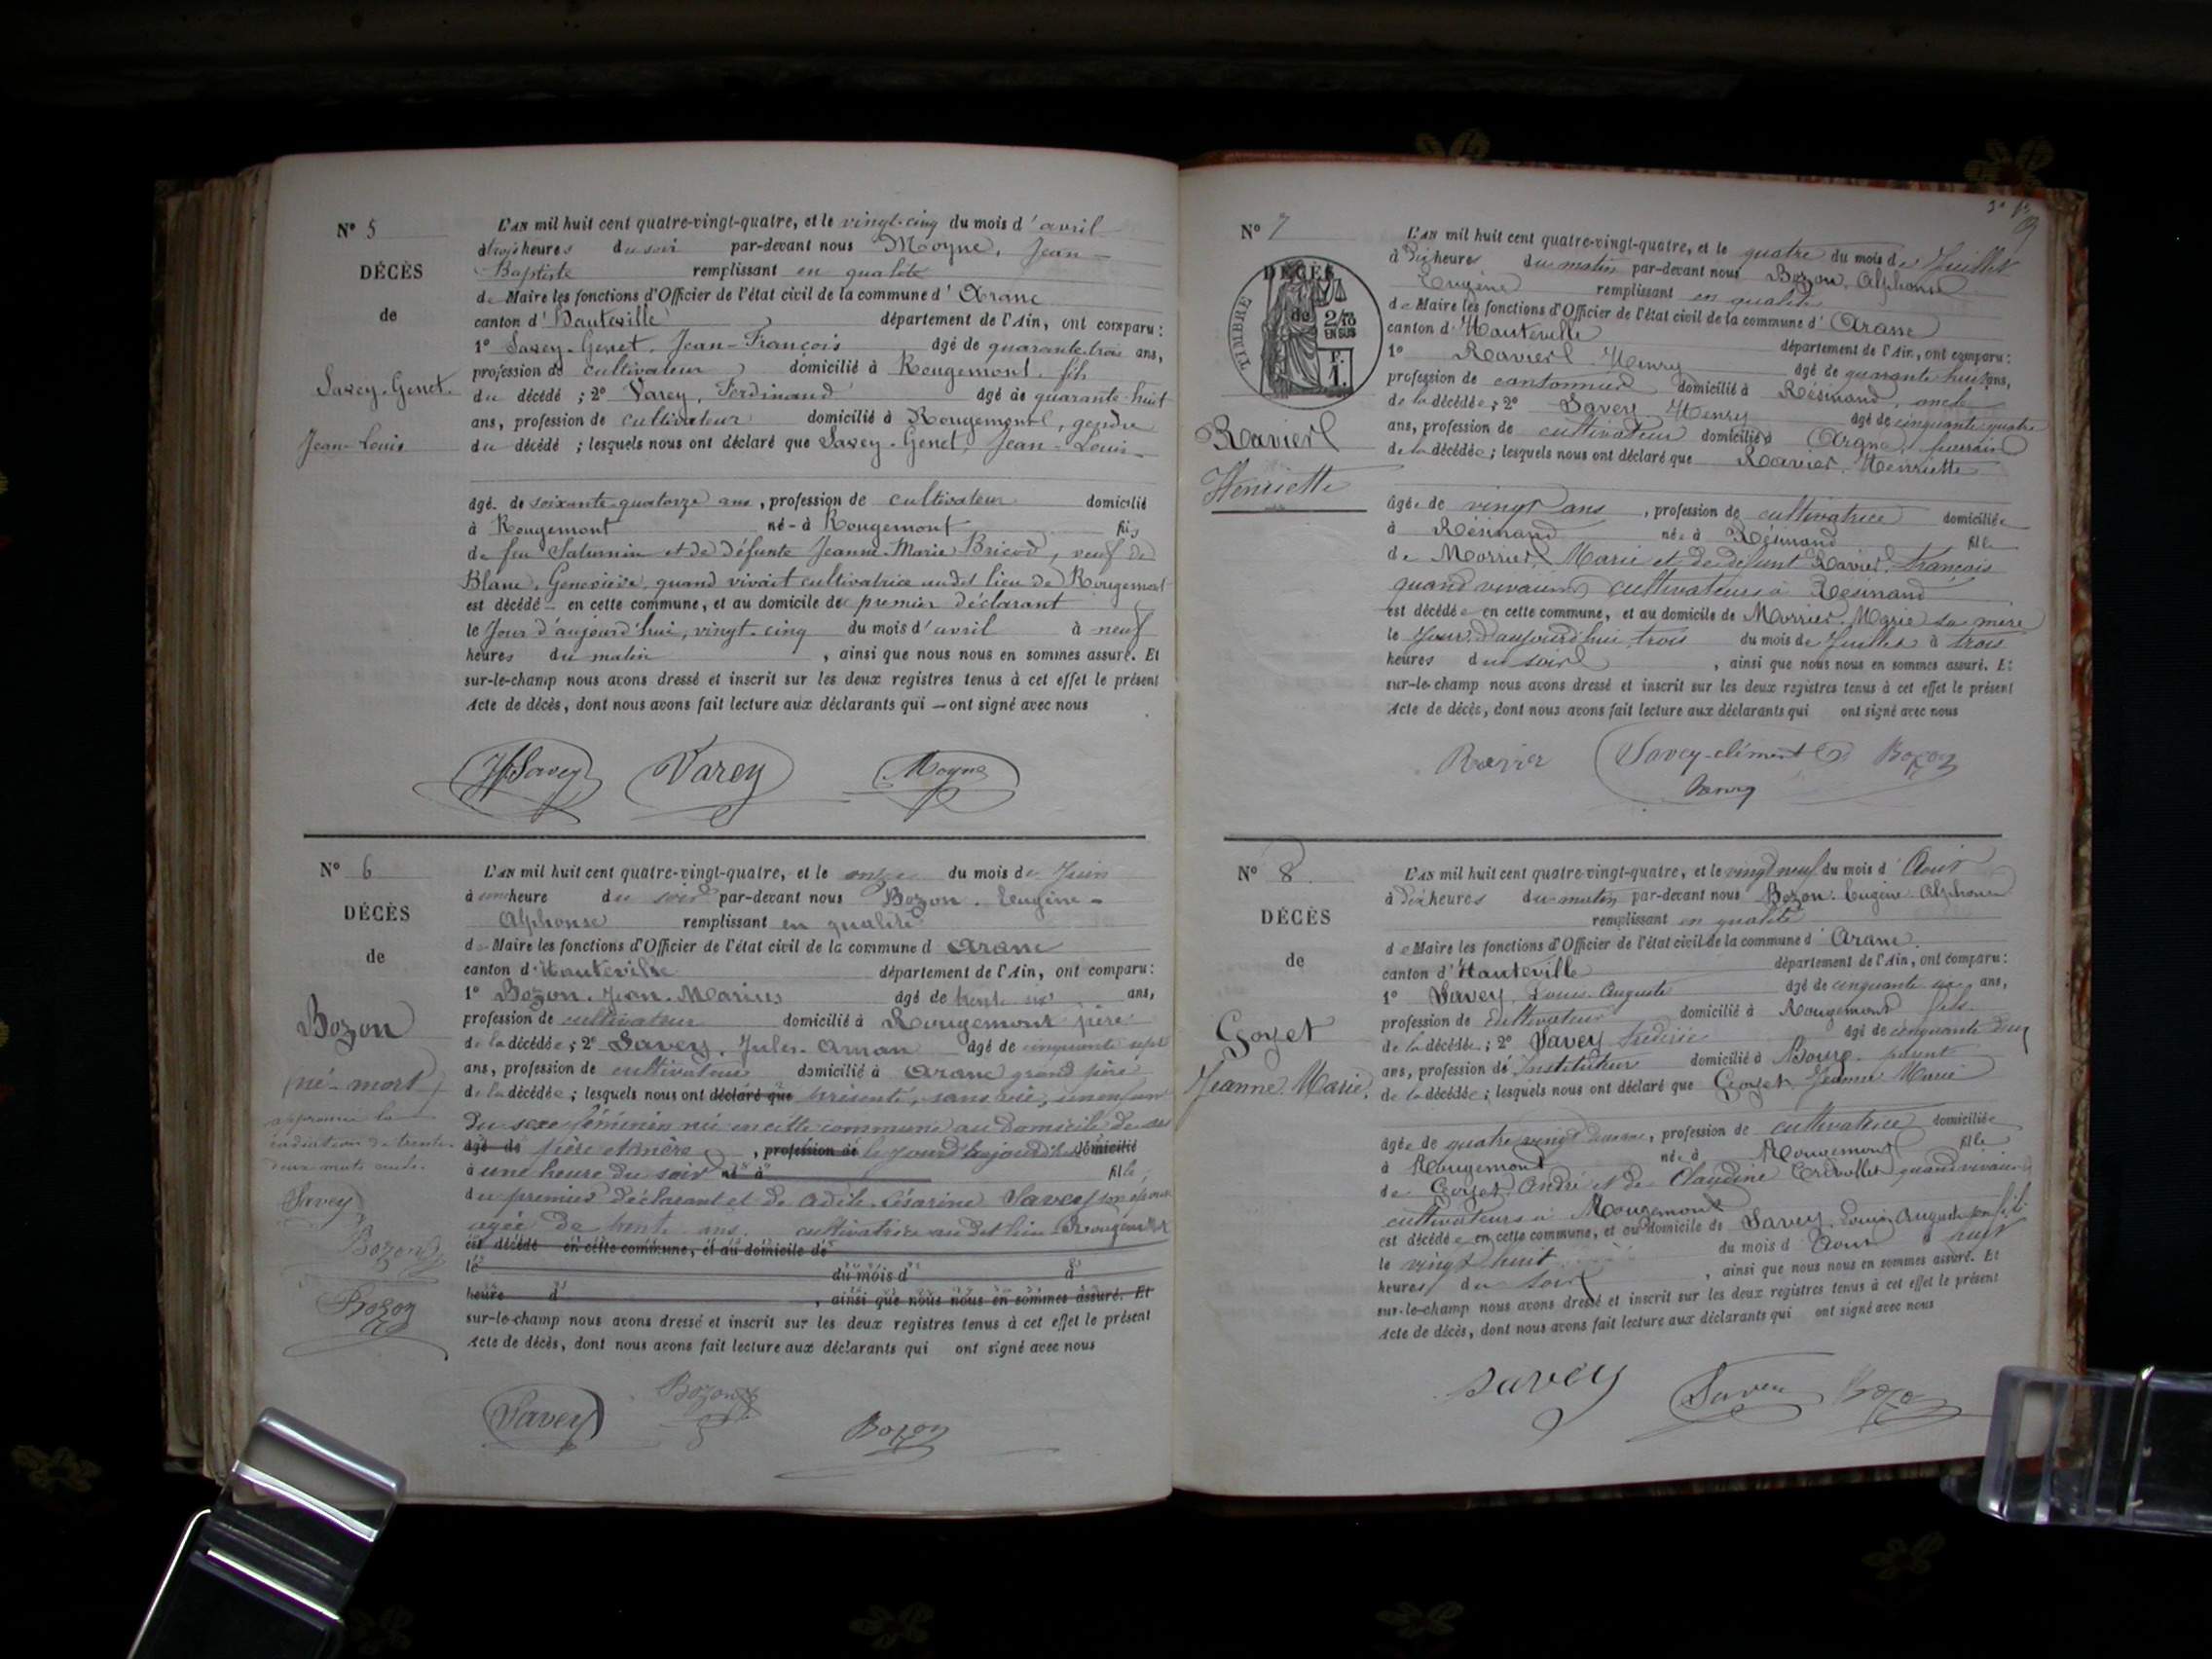 N° 5
DÉCÈS
de
Savey-Genet.
Jean-Louis
L'AN mil huit cent quatre-vingt-quatre, et le vingt-cinq du mois d'avril
à trois heures du soir par-devant nous Moyne, Jean-
Baptiste remplissant en qualité
de Maire les fonctions d'Officier de l'état civil de la commune d'Aranc
canton d'Hauteville département de l'Ain, ont comparu :
1° Savey-Genet, Jean-François âgé de quarante-trois ans,
profession de cultivateur domicilié à Rougemont, fils
du décédé ; 2° Varey, Ferdinand âgé de quarante-huit
ans, profession de cultivateur domicilié à Rougemont, gendre
du décédé ; lesquels nous ont déclaré que Savey-Genet, Jean-Louis
âgé de soixante-quatorze ans, profession de cultivateur domicilié
à Rougemont né à Rougemont fils
de feu Saturnin et de défunte Jeanne-Marie Bricod, veuf de
Blanc, Geneviève, quand vivait cultivatrice audit lieu de Rougemont
est décédé en cette commune, et au domicile de premier déclarant
le jour d'aujourd'hui, vingt-cinq du mois d'avril à neuf
heures du matin, ainsi que nous nous en sommes assuré. Et
sur-le-champ nous avons dressé et inscrit sur les deux registres tenus à cet effet le présent
Acte de décès, dont nous avons fait lecture aux déclarants qui — ont signé avec nous
JF Savey Varey Moyne
N° 6
DÉCÈS
de
Bozon
(né-mort)
approuvé la
radiation de trente
deux mots nuls.
Savey
Bozon
Bozon
L'AN mil huit cent quatre-vingt-quatre, et le onze du mois de Juin
à une heure du soir par-devant nous Bozon, Eugène-
Alphonse remplissant en qualité
de Maire les fonctions d'Officier de l'état civil de la commune d'Aranc
canton d'Hauteville département de l'Ain, ont comparu :
1° Bozon, Jean-Marius âgé de trente six ans,
profession de cultivateur domicilié à Rougemont père
de la décédée ; 2° Savey, Jules-Aman âgé de cinquante sept
ans, profession de cultivateur domicilié à Aranc grand père
de la décédée ; lesquels nous ont déclaré que présenté, sans vie, un enfant
du sexe féminin né en cette commune au domicile de ses
âgé de père et mère, profession de le jour d'aujourd'hui domicilié
à une heure du soir né à fille
du premier déclarant et de Adèle-Césarine Savey son épouse
agée de trente ans, cultivatrice au dit lieu Rougemont
est décédé en cette commune, et au domicile de
le du mois d à
heure d, ainsi que nous nous en sommes assuré. Et
sur-le-champ nous avons dressé et inscrit sur les deux registres tenus à cet effet le présent
Acte de décès, dont nous avons fait lecture aux déclarants qui ont signé avec nous
Savey Bozon Bozon
N° 7
DÉCÈS
de
TIMBRE
2/10
EN SUS
F.
1.
Ravier
Henriette
L'AN mil huit cent quatre-vingt-quatre, et le quatre du mois de Juillet
à dix heures du matin par-devant nous Bozon, Alphonse
Eugène remplissant en qualité
de Maire les fonctions d'Officier de l'état civil de la commune d'Aranc
canton d'Hauteville département de l'Ain, ont comparu :
1° Ravier Henry âgé de quarante huit ans,
profession de cantonnier domicilié à Résinand, oncle
de la décédée ; 2° Savey Henry âgé de cinquante quatre
ans, profession de cultivateur domicilié à Aranc
de la décédée ; lesquels nous ont déclaré que Ravier, Henriette
âgée de vingt ans, profession de cultivatrice domiciliée
à Résinand née à Résinand fille
de Morrier, Marie et de défunt Ravier, François
quand vivaient cultivateurs à Résinand
est décédée en cette commune, et au domicile de Morrier Marie sa mère
le jour d'aujourd'hui trois du mois de Juillet à trois
heures du soir, ainsi que nous nous en sommes assuré. Et
sur-le-champ nous avons dressé et inscrit sur les deux registres tenus à cet effet le présent
Acte de décès, dont nous avons fait lecture aux déclarants qui ont signé avec nous
Ravier Savey-clément Bozon
henry
N° 8
DÉCÈS
de
Goyet
Jeanne Marie.
L'AN mil huit cent quatre-vingt-quatre, et le vingt neuf du mois d'Août
à dix heures du matin par-devant nous Bozon Eugène Alphonse
remplissant en qualité
de Maire les fonctions d'Officier de l'état civil de la commune d'Aranc.
canton d'Hauteville département de l'Ain, ont comparu :
1° Savey, Louis-Auguste âgé de cinquante six ans,
profession de cultivateur domicilié à Rougemont fils
de la décédée ; 2° Savey âgé de cinquante deux
ans, profession de Instituteur domicilié à Bourg parent
de la décédée ; lesquels nous ont déclaré que Goyet Jeanne Marie
âgée de quatre vingt ans, profession de cultivatrice domiciliée
à Rougemont née à Rougemont fille
de Goyet André et de Claudine quand vivaient
cultivateurs à Rougemont
est décédée en cette commune, et au domicile de Savey, Louis Auguste son fils
le vingt huit du mois d'Août à huit
heures du soir, ainsi que nous nous en sommes assuré. Et
sur-le-champ nous avons dressé et inscrit sur les deux registres tenus à cet effet le présent
Acte de décès, dont nous avons fait lecture aux déclarants qui ont signé avec nous
Savey Savey Bozon